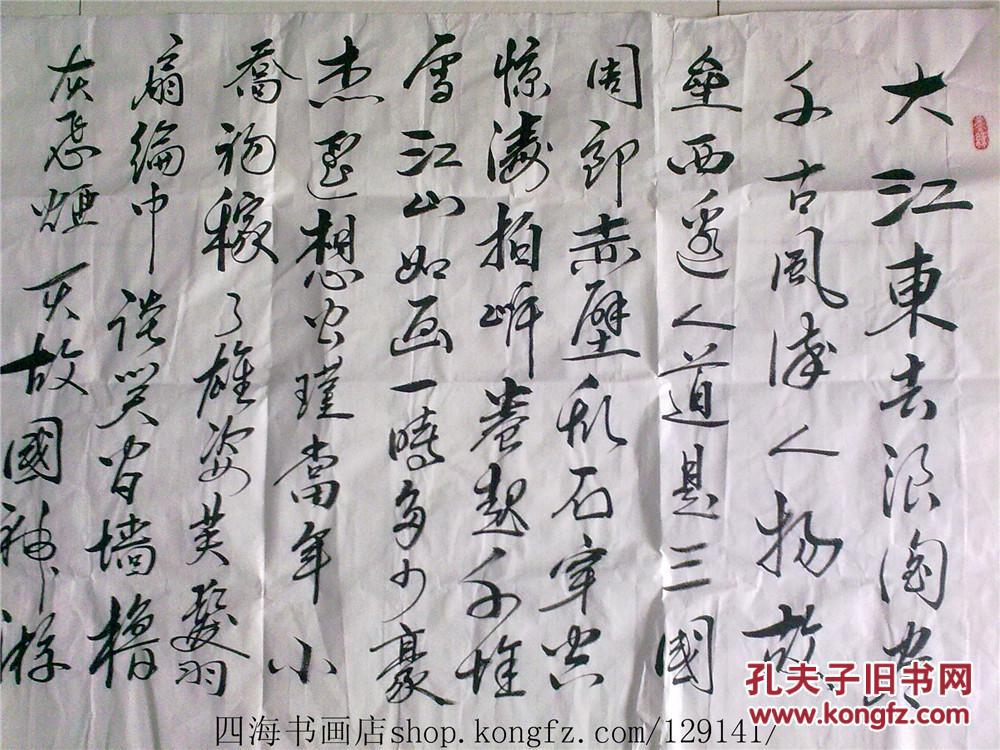 大江東去浪淘盡
千古風流人物故
壘西邊人道是三國
周郎赤壁乱石穿空
惊濤拍岸卷起千堆
雪江山如画一時多少豪
杰遥想公瑾當年小
喬初稼了雄姿英發羽
扇綸巾談笑间墙櫓
灰飛煙灭故國神游
孔夫子旧书网
www.kongfz.com
四海书画店shop.kongfz.com/129141/